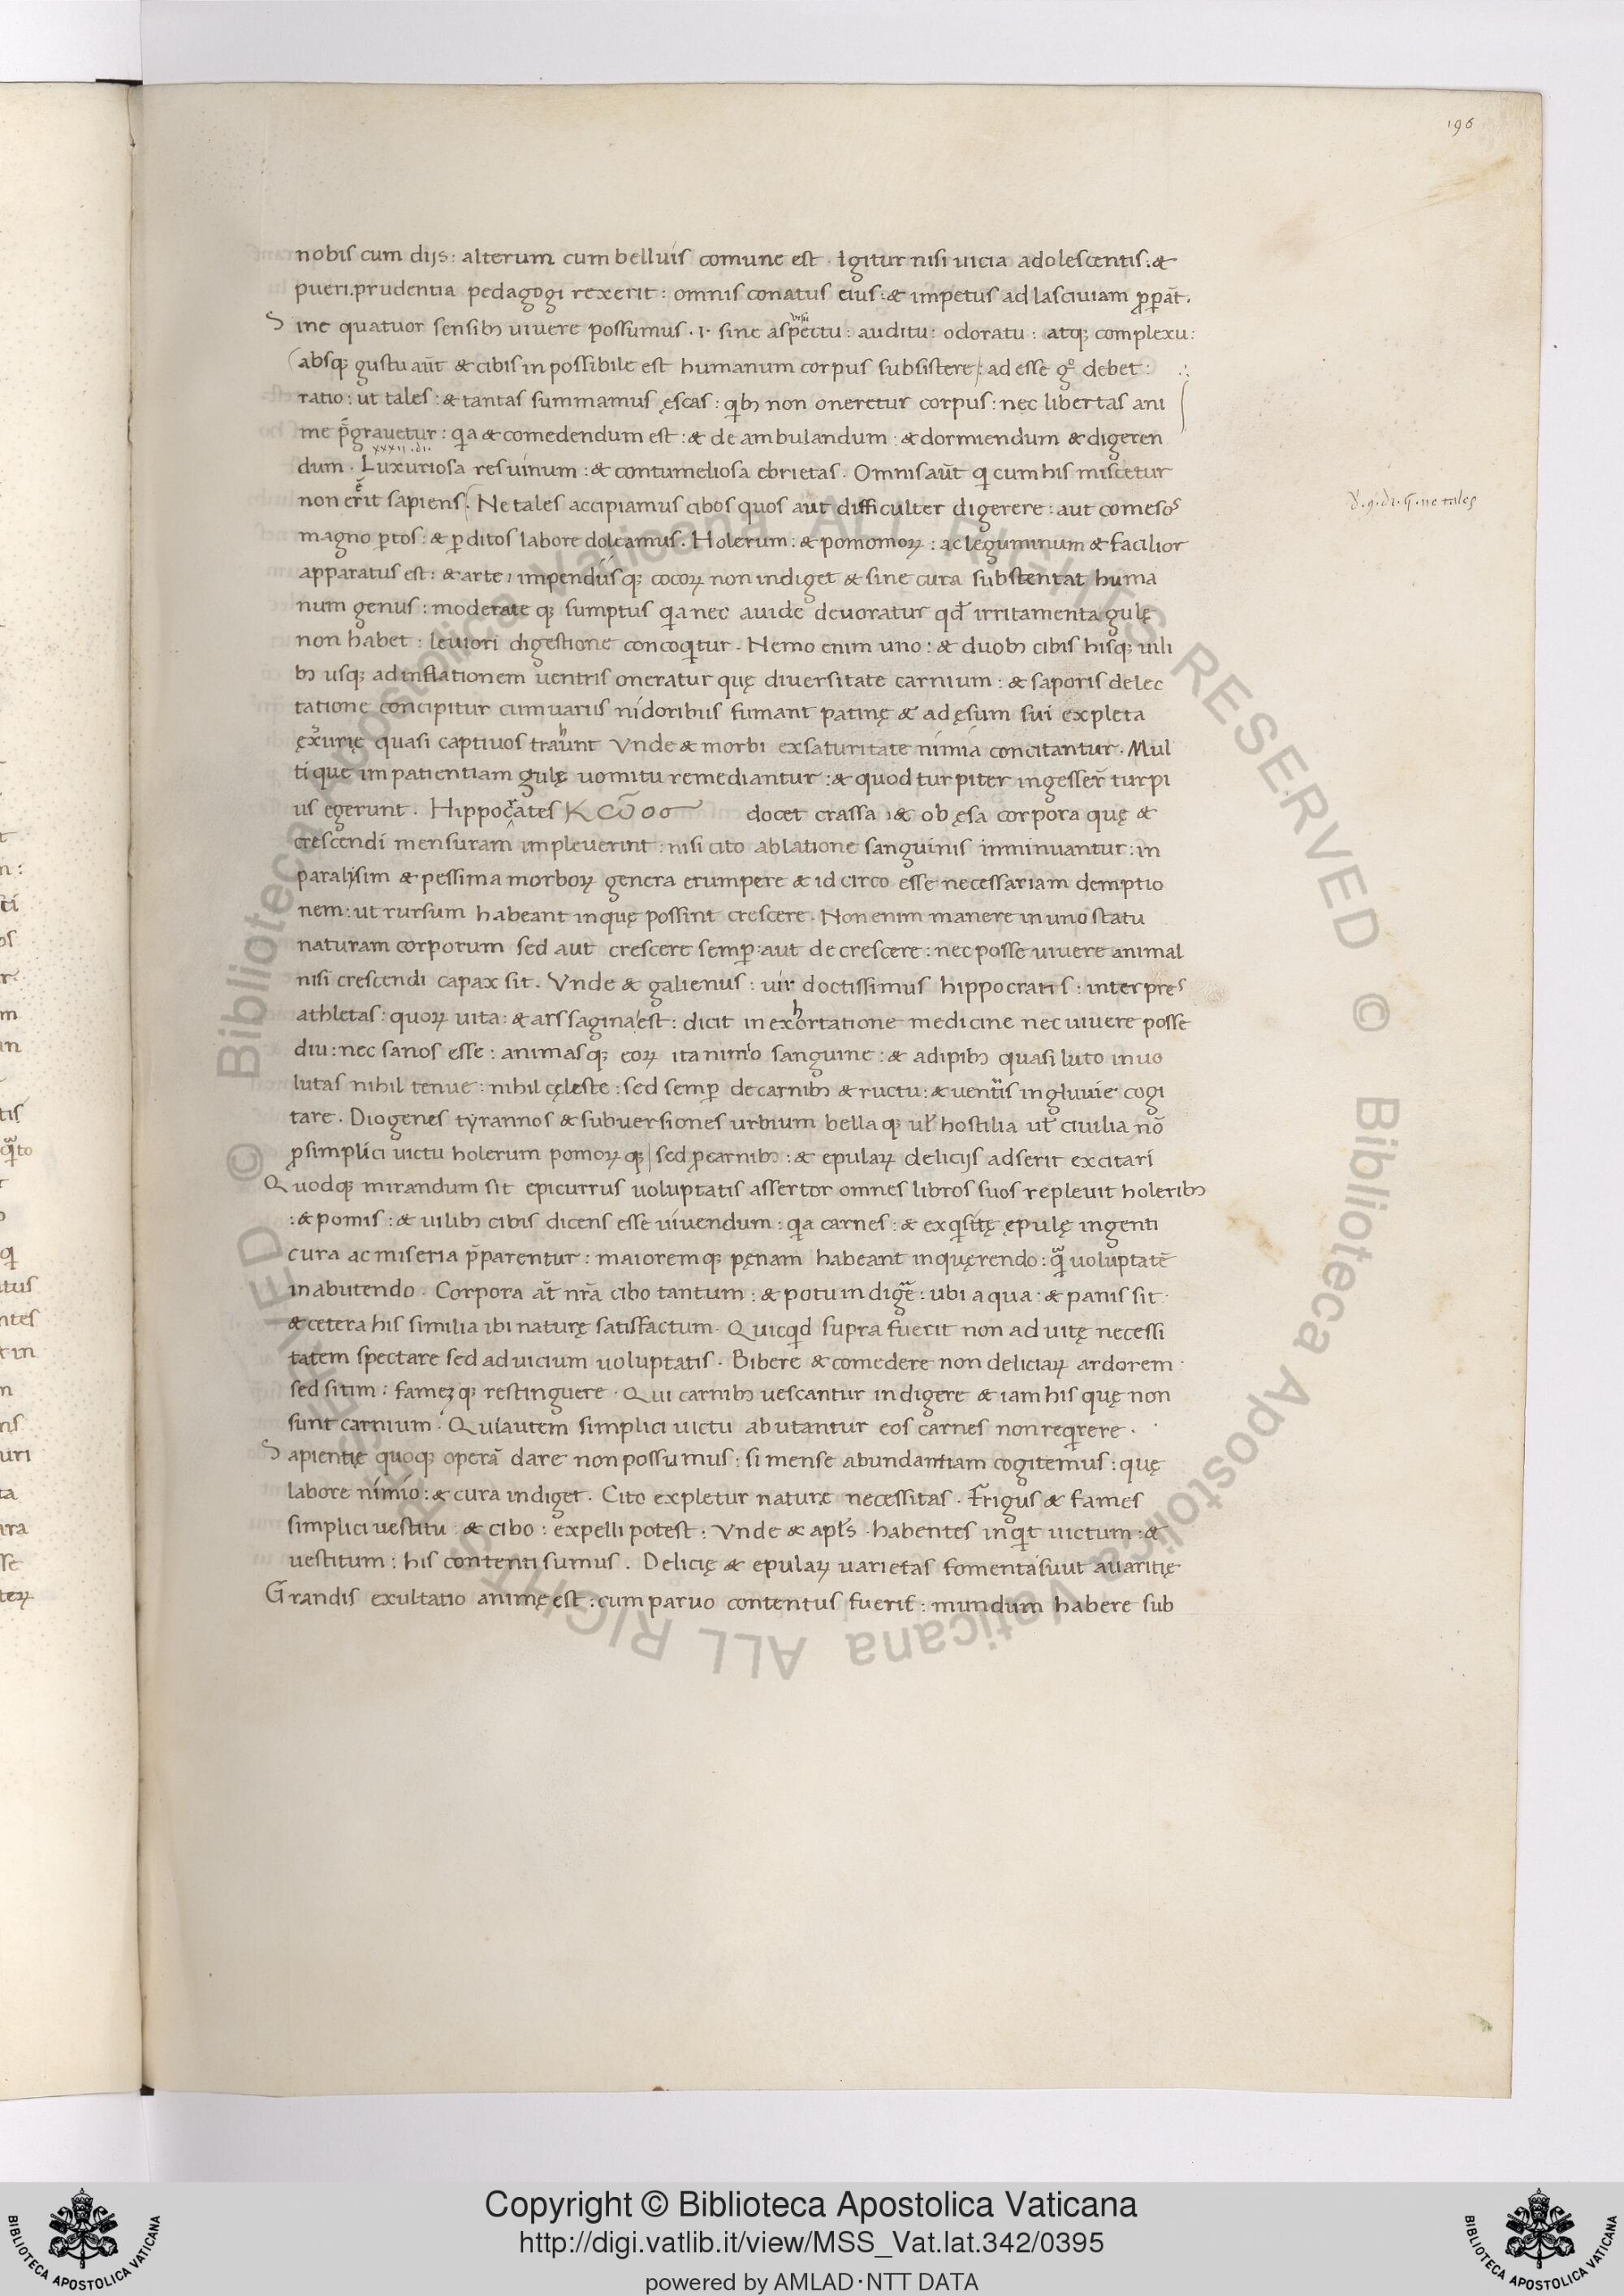 196
nobis cum dijs: alterum cum belluis comune est. Igitur nisi uicia adolescentis: &
pueri. prudentia pedagogi rexerit: omnis conatus eius: & impetus ad lasciuiam ꝓꝑāt.
Sine quatuor sensibꝫ uiuere possumus. ·i· sine aspectu: auditu: odoratu: atqꝫ complexu:
absqꝫ gustu aūt & cibis in possibile est humanum corpus subsistere: ad esse gͦ debet:
ratio: ut tales: & tantas summamus ęscas: qibꝫ non oneretur corpus: nec libertas ani
me p̄grauetur: qia & comedendum est: & de ambulandum: & dormiendum & digeren
xxxii. di.
dum. Luxuriosa res uinum: & contumeliosa ebrietas. Omnis aūt qi cum his miscetur
non erit sapiens. Ne tales accipiamus cibos quos aut difficulter digerere: aut comesos
ne tales
magno ꝑtos: & ꝑditos labore doleamus. Holerum: & pomomoꝝ: ac leguminum & facilior
apparatus est: & arte, impendiisqꝫ cocoꝝ non indiget & sine cura substentat huma
num genus: moderate qꝫ sumptus qia nec auide deuoratur qd̄ irritamenta gulę
non habet: leuiori digestione concoqitur. Nemo enim uno: & duobꝫ cibis hisqꝫ uili
bꝫ usqꝫ ad inflationem uentris oneratur quę diuersitate carnium: & saporis delec
tatione concipitur cum uariis nidoribus fumant patinę & ad ęsum sui expleta
ęxurię quasi captiuos trahunt Vnde & morbi ex saturitate nimia concitantur. Mul
ti que im patientiam gulę uomitu remediantur: & quod turpiter ingesser̄ turpi
us egerunt. Hippocrates docet crassa: & ob ęsa corpora quę &
crescendi mensuram impleuerint: nisi cito ablatione sanguinis imminuantur: in
paralysim & pessima morboꝝ genera erumpere & id circo esse necessariam demptio
nem: ut rursum habeant in quę possint crescere. Non enim manere in uno statu
naturam corporum sed aut crescere semꝑ: aut de crescere: nec posse uiuere animal
nisi crescendi capax sit. Vnde & galienus: uir doctissimus hippocratis: interpres
athletas: quoꝝ uita: & ars sagina est: dicit in exhortatione medicine nec uiuere posse
diu: nec sanos esse: animasqꝫ eoꝝ ita nimio sanguine: & adipibꝫ quasi luto inuo
lutas nihil tenue: nihil cęleste: sed semꝑ de carnibꝫ & ructu: & uentris ingluuie cogi
tare. Diogenes tyrannos & subuersiones urbium bella qꝫ ul̄ hostilia ul̄ ciuilia nō
ꝓ simplici uictu holerum pomoꝝ qꝫ sed ꝓ carnibꝫ: & epulaꝝ delicijs adserit excitari
Quodqꝫ mirandum sit epicurrus uoluptatis assertor omnes libros suos repleuit holeribꝫ
: & pomis: & uilibꝫ cibis dicens esse uiuendum: qia carnes: & exqisitę ępulę ingenti
cura ac miseria p̄parentur: maioremqꝫ pęnam habeant in quęrendo: qam uoluptatē
in abutendo. Corpora aūt nr̄a cibo tantum: & potu indigent: ubi aqua: & panis sit
& cetera his similia ibi naturę satisfactum. Quicqid supra fuerit non ad uitę necessi
tatem spectare sed ad uicium uoluptatis. Bibere & comedere non deliciaꝝ ardorem
sed sitim: famezqꝫ restinguere. Qui carnibꝫ uescantur indigere & iam his quę non
sunt carnium. Qui autem simplici uictu abutantur eos carnes non reqirere.
Sapientię quoqꝫ operā dare non possumus: si mense abundantiam cogitemus: quę
labore nimio: & cura indiget. Cito expletur naturę necessitas. Frigus & fames
simplici uestitu: & cibo: expelli potest: Vnde & apl̄s. habentes inqit uictum: &
uestitum: his contenti sumus. Delicię & epulaꝝ uarietas fomenta sunt auaritię
Grandis exultatio animę est: cum paruo contentus fuerit: mundum habere sub
© Biblioteca Apostolica Vaticana ALL RIGHTS RESERVED
Copyright © Biblioteca Apostolica Vaticana
http://digi.vatlib.it/view/MSS_Vat.lat.342/0395
powered by AMLAD·NTT DATA
BIBLIOTECA APOSTOLICA VATICANA
BIBLIOTECA APOSTOLICA VATICANA